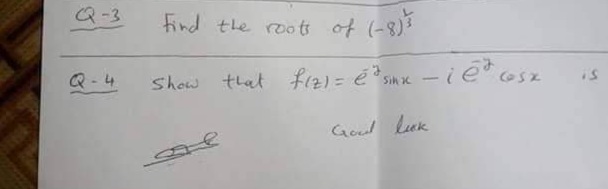 Q-3 Find the roots of (-8)^{1/3}
Q-4 Show that f(z) = e^{-y} sin x - i e^{-y} cos x is
Good luck